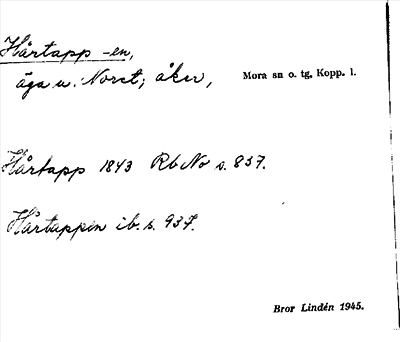 Hårtapp -en,
äga u. Noret; åker, Mora sn o. tg, Kopp. l.
Hårtapp 1843 Rb No s. 857.
Hårtappen ib. s. 937.
Bror Lindén 1945.